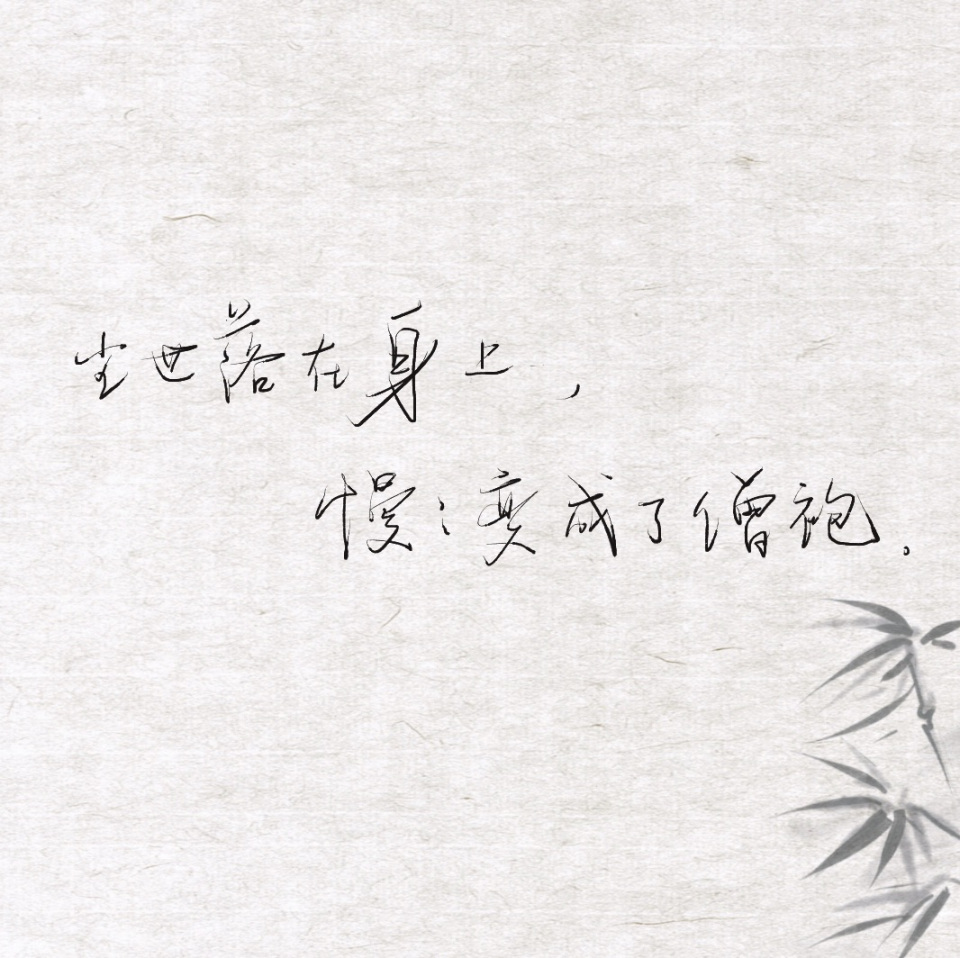 尘世落在身上，
慢々变成了僧袍。